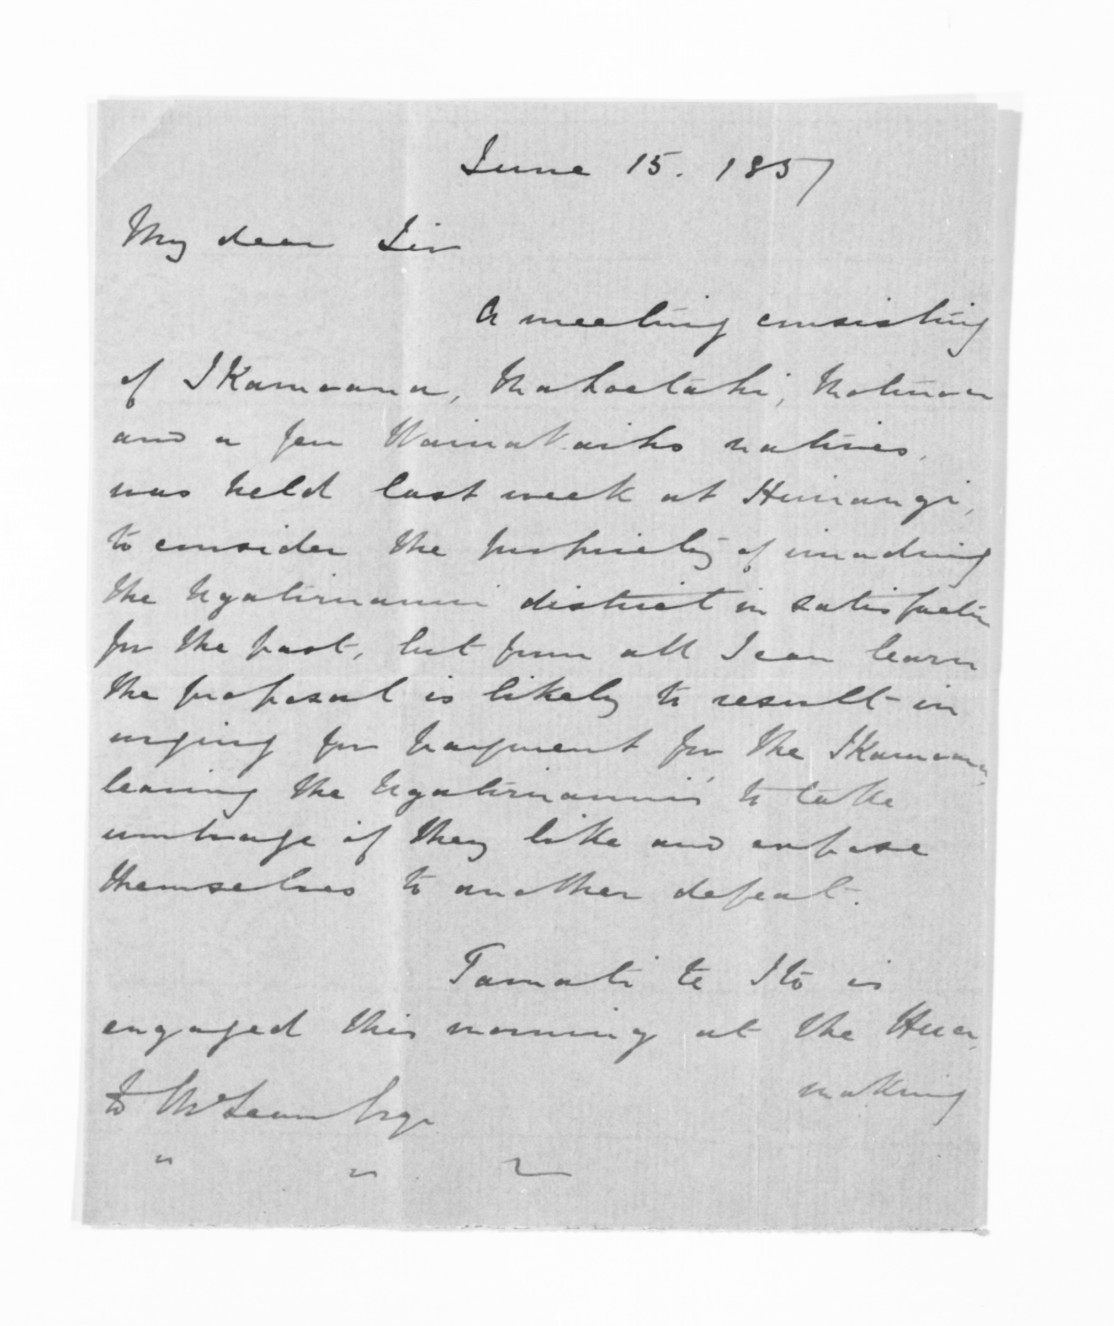 June 15. 1857
My dear Sir
A meeting consisting
of IKamoana, Mahoetahi, Matinoa
and a few Waiwakaiho natives,
was held last week at Huirangi,
to consider the propriety of invading
the Ngatiruanui district in satisfactn
for the past, but from all I can learn
the proposal is likely to result in
urging for payment for the IKamoana,
leaving the Ngatiruanuis to take
umbrage if they like and expose
themselves to another defeat.
Tamati te Ito is
engaged this morning at the Hua,
making
to McLean Esqr
" " "